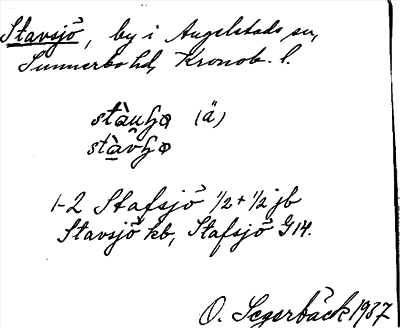 Stavsjö, by i Angelstads sn,
Sunnerbo hd, Kronob. l.
(ä)
1-2 Stafsjö 1/2 + 1/2 jb
Stavsjö kb, Stafsjö G 14.
O. Segerbäck 1937